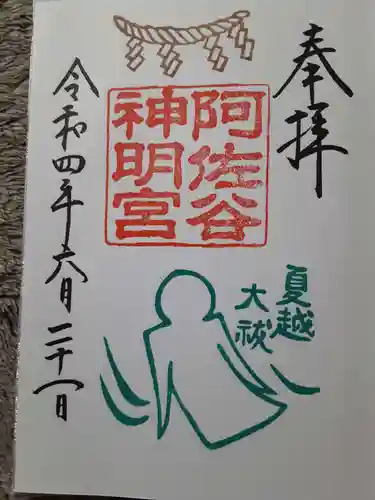 奉拝
阿佐谷
神明宮
夏越
大祓
令和四年六月二十一日